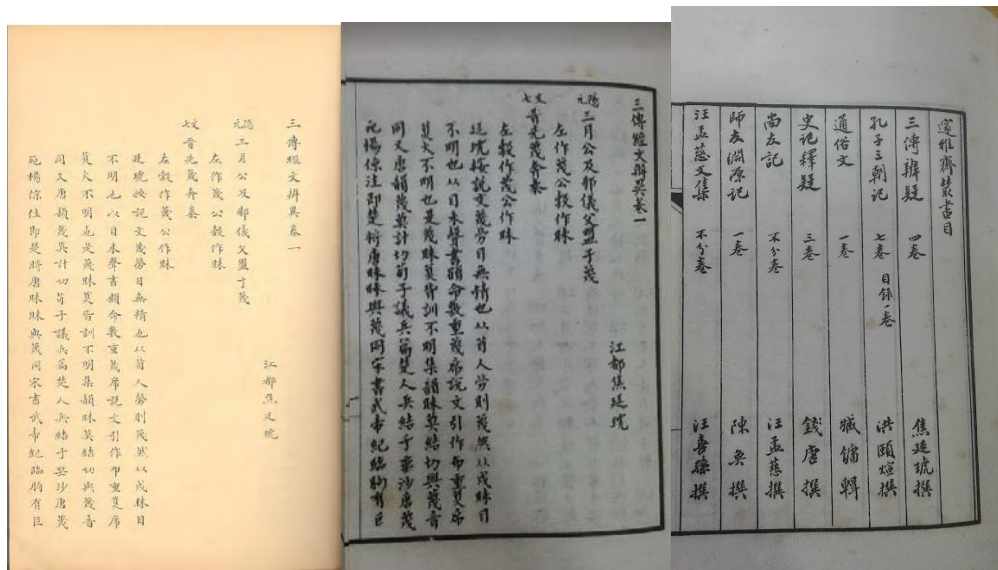 三傳經文辨異卷一
江都焦廷琥
隱元
三月公及邾儀父盟于蔑
左作蔑公穀作眛
文七
晉先蔑奔秦
左穀作蔑公作眛
廷琥按說文蔑勞目無精也从苜人勞則蔑然从戍眛目
不明也从目末聲書顧命敷重蔑席說文引作布重莫席
莫火不明也是蔑眛莫皆訓不明集韻眛莫結切與蔑音
同又唐韻蔑莫計切荀子議兵篇楚人兵結于垂沙唐蔑
死楊倞注即楚將唐眛眛與蔑同宋書武帝紀臨朐有巨
三傳經文辨異卷一
江都焦廷琥
隱元
三月公及邾儀父盟于蔑
左作蔑公穀作眛
文七
晉先蔑奔秦
左穀作蔑公作眛
廷琥按說文蔑勞目無精也从苜人勞則蔑然从戍眛目
不明也从目末聲書顧命敷重蔑席說文引作布重莫席
莫火不明也是蔑眛莫皆訓不明集韻眛莫結切與蔑音
同又唐韻蔑莫計切荀子議兵篇楚人兵結于垂沙唐蔑
死楊倞注即楚將唐眛眛與蔑同宋書武帝紀臨朐有巨
邃雅齋叢書目
三傳辨疑 四卷 焦廷琥撰
孔子三朝記 七卷 目錄一卷 洪頤煊撰
通俗文 一卷 臧鏞輯
史記釋疑 三卷 錢唐撰
尚友記 不分卷 汪孟慈撰
師友淵源記 一卷 陳奐撰
汪孟慈文集 不分卷 汪喜孫撰